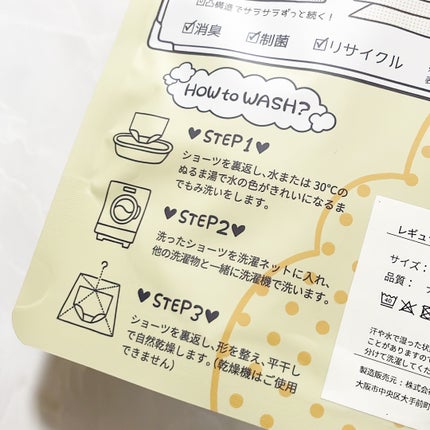 凹凸構造でサラサラずっと続く!
☑消臭 ☑制菌 ☑リサイクル
HOW to WASH?
♥STEP1♥
ショーツを裏返し、水または30℃の
ぬるま湯で水の色がきれいになるま
でもみ洗いをします。
♥STEP2♥
洗ったショーツを洗濯ネットに入れ、
他の洗濯物と一緒に洗濯機で洗います。
♥STEP3♥
ショーツを裏返し、形を整え、平干し
で自然乾燥します。(乾燥機はご使用
できません)
レギュ
サイズ:
品質:
汗や水で湿った状
ことがありますので
分けて洗濯してくだ
製造販売元:株式会
大阪市中央区大手前町